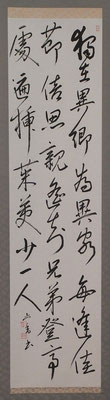 獨在異郷為異客每逢佳
節倍思親遙知兄弟登高
處遍插茱萸少一人